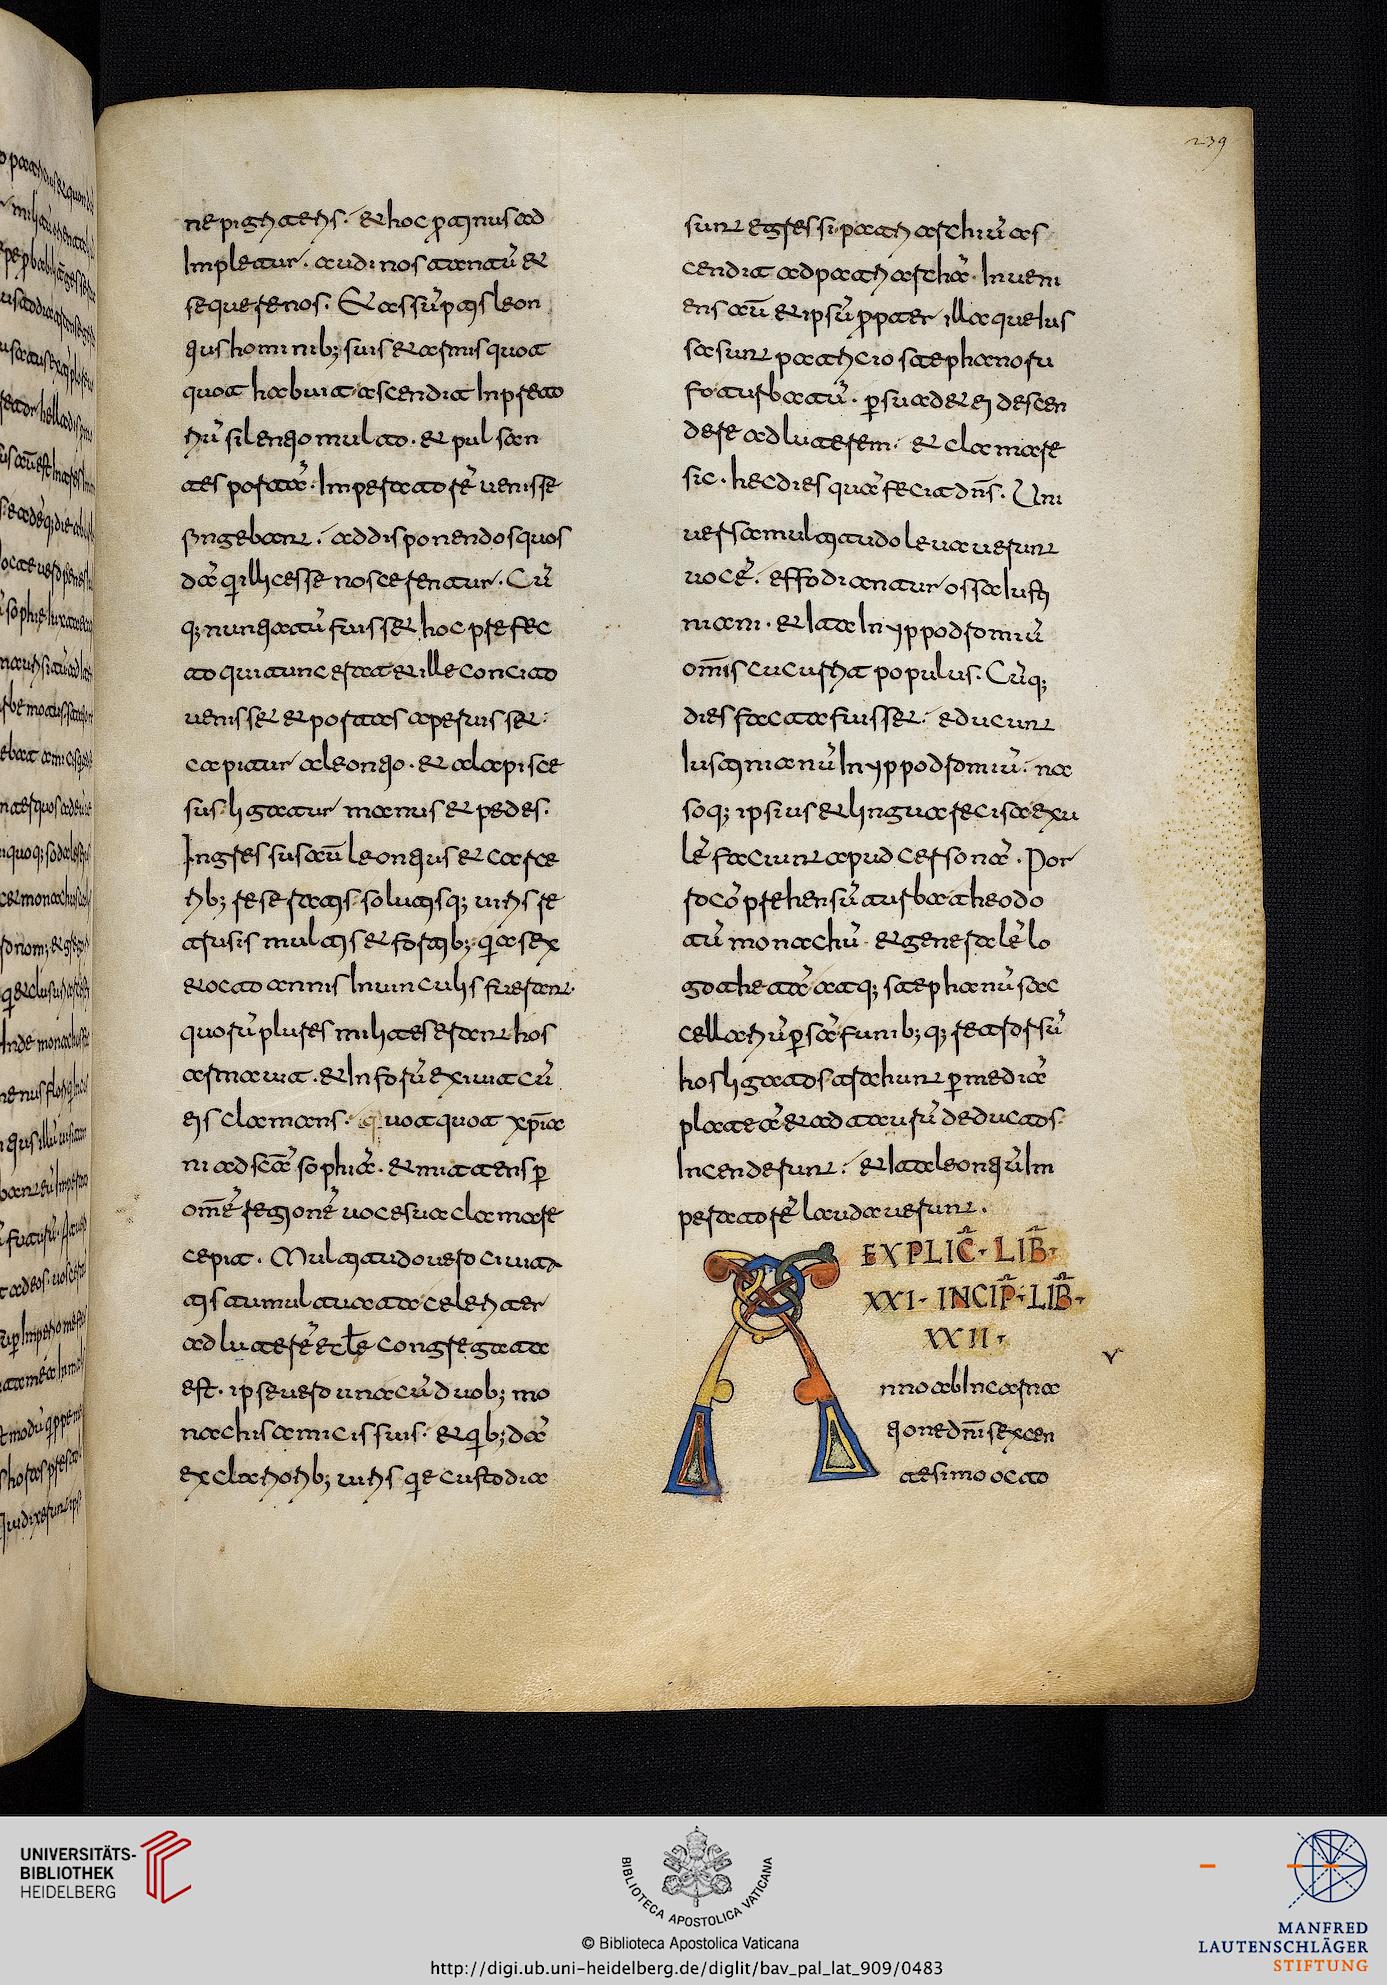 239
ne pigriteris. & hoc ptinus ad
Impletur. audi nos tantū &
sequere nos. Et assūptis leon
tius hominib; suis & armis quot
quot habuit ascendit In preto
riū silentio multo. & pulsan
tes portā. Imperatorē uenisse
fingebant. ad disponendos quos
dā qui illic esse noscerentur. Cū
q; nuntiatū fuisset hoc prefec
to qui tunc erat & ille concito
uenisset & portas aperuisset.
capitur a leontio. & alapis ce
sus ligatur manus & pedes.
Ingressus autē leontius & carce
rib; reseratis solutisq; uiris re
trusis multis & fortib; qui a sex
& octo annis In uinculis fuerant.
quorū plures milites erant hos
armauit. & In forū exiuit cū
eis clamans. quotquot xp̄ia
ni ad scā sophiā. & mittens p
om̄ē regionē uoce sua clamare
cepit. Multitudo uero ciuita
tis tumultuata celeriter
ad luterē eccłe congregata
est. ipse uero una cū duob; mo
nachis amicis suis. & quib; dā
ex clarioribus uiris qui e custodia
sunt egressi patriarchiū as
cendit ad patriarchā. Inueni
ens aū & ipsū ppter illa que Ius
sa sunt patricio stephano ru
fo turbatū. psuadet ei descen
dere ad luterem. & clamare
sic. hec dies quā fecit dn̄s. Uni
uersa multitudo leuauerunt
uocē. effodiantur ossa Iusti
niani. & Ita In yppodromiū
om̄is cucurrit populus. Cūq;
dies facta fuisset. educunt
Iustinianū In yppodromiū. na
soq; ipsius & lingua recisa exu
lē faciunt apud cersonā. Por
ro cōprehensū turba theodo
tū monachū & generalē lo
gothetā atq; stephanū sac
cellariū psā funib; q; retrorsū
hos ligatos trahunt p mediā
plateā & ad taurū deductos
Incenderunt. & Ita leontiū Im
peratorē laudauerunt.
EXPLIC̄· LIB̄·
XXI· INCIP̄·LIB̄·
XXII·
Anno ab Incarna
tione dn̄i sexcen
tesimo octo
UNIVERSITÄTS-
BIBLIOTHEK
HEIDELBERG
BIBLIOTECA APOSTOLICA VATICANA
© Biblioteca Apostolica Vaticana
http://digi.ub.uni-heidelberg.de/diglit/bav_pal_lat_909/0483
MANFRED
LAUTENSCHLÄGER
STIFTUNG